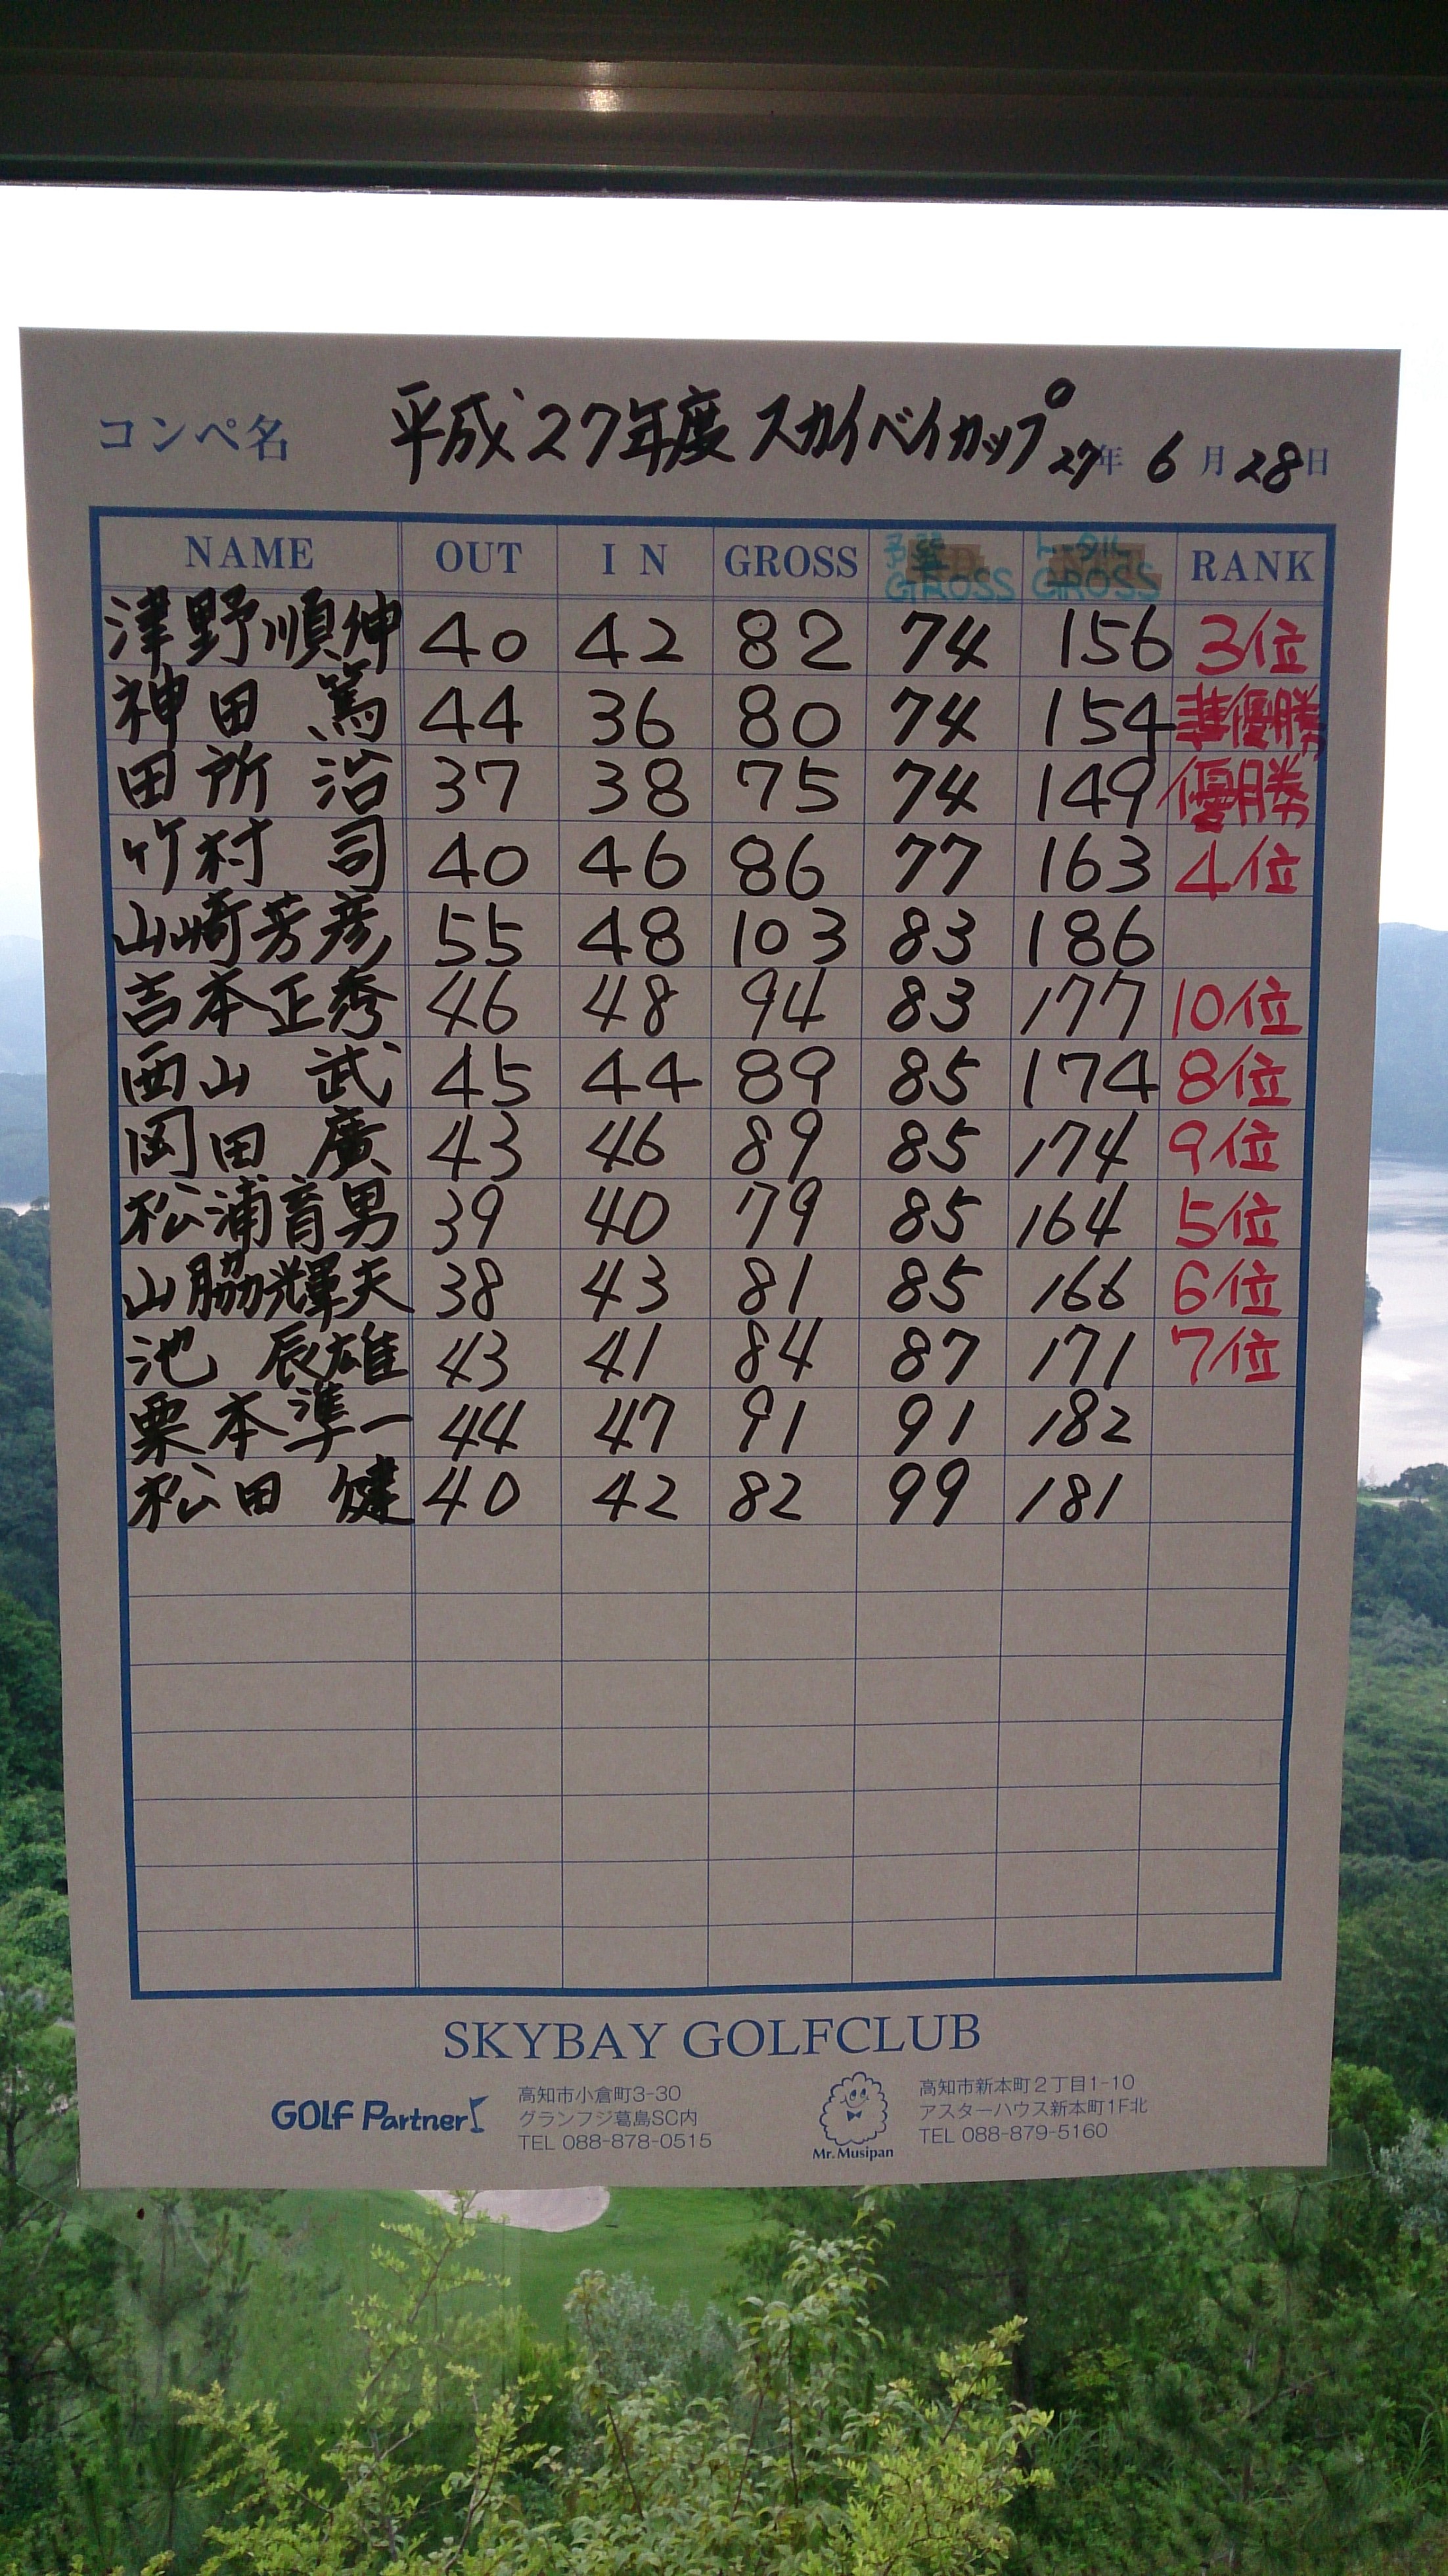 コンペ名 平成27年度 スカイベイカップ 27年 6月 28日
NAME OUT IN GROSS 予選 GROSS トータル GROSS RANK
津野順伸 40 42 82 74 156 3位
神田 篤 44 36 80 74 154 準優勝
田所 治 37 38 75 74 149 優勝
竹村 司 40 46 86 77 163 4位
山崎芳彦 55 48 103 83 186
吉本正秀 46 48 94 83 177 10位
西山 武 45 44 89 85 174 8位
岡田 廣 43 46 89 85 174 9位
松浦育男 39 40 79 85 164 5位
山脇輝夫 38 43 81 85 166 6位
池 辰雄 43 41 84 87 171 7位
栗本準一 44 47 91 91 182
松田 健 40 42 82 99 181
SKYBAY GOLFCLUB
GOLF Partner
高知市小倉町3-30
グランフジ葛島SC内
TEL 088-878-0515
Mr. Musipan
高知市新本町2丁目1-10
アスターハウス新本町1F北
TEL 088-879-5160